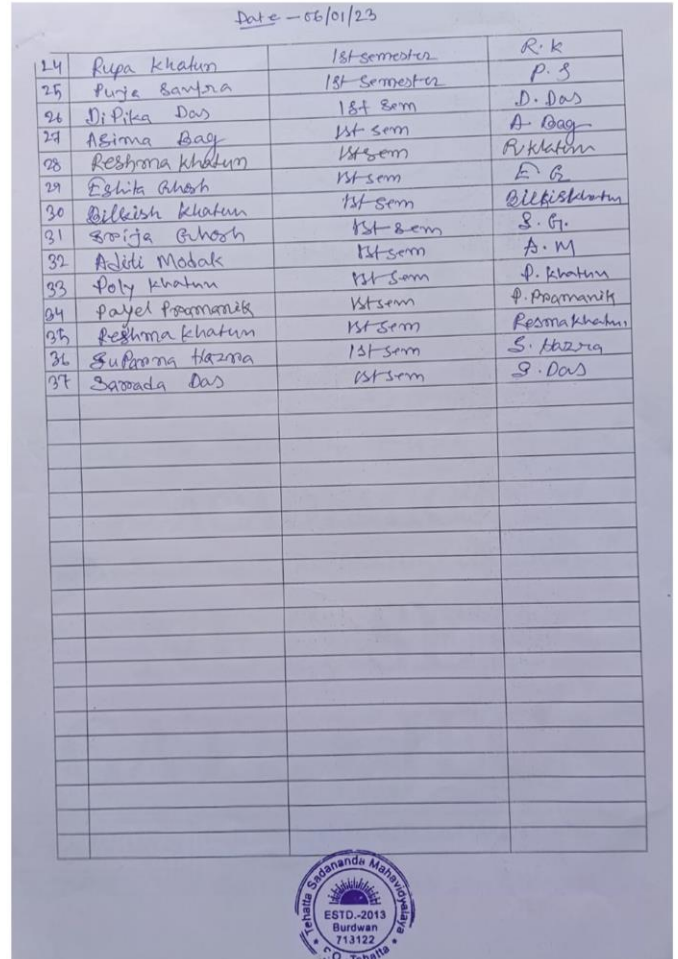 Date - 06/01/23
24 Rupa Khatun 1st semester R. K
25 Puja Santra 1st Semester P. S
26 DiPika Das 1st Sem D. Das
27 Asima Bag 1st Sem A Bag
28 Reshma Khatun 1st sem R Khatun
29 Eshita Ghosh 1st sem E G
30 Bilkish Khatun 1st Sem Bilkiskhatun
31 Sreija Ghosh 1st Sem S. G.
32 Aditi Modak 1st sem A. M
33 Poly Khatun 1st Sem P. Khatun
34 Payel Pramanik 1st sem P. Pramanik
35 Reshma Khatun 1st Sem Resmakhatun
36 SuParna Hazra 1st sem S. Hazra
37 Sarada Das 1st Sem S. Das
Tehatta Sadananda Mahavidyalaya
ESTD.-2013
Burdwan
713122
P.O. Tehatta